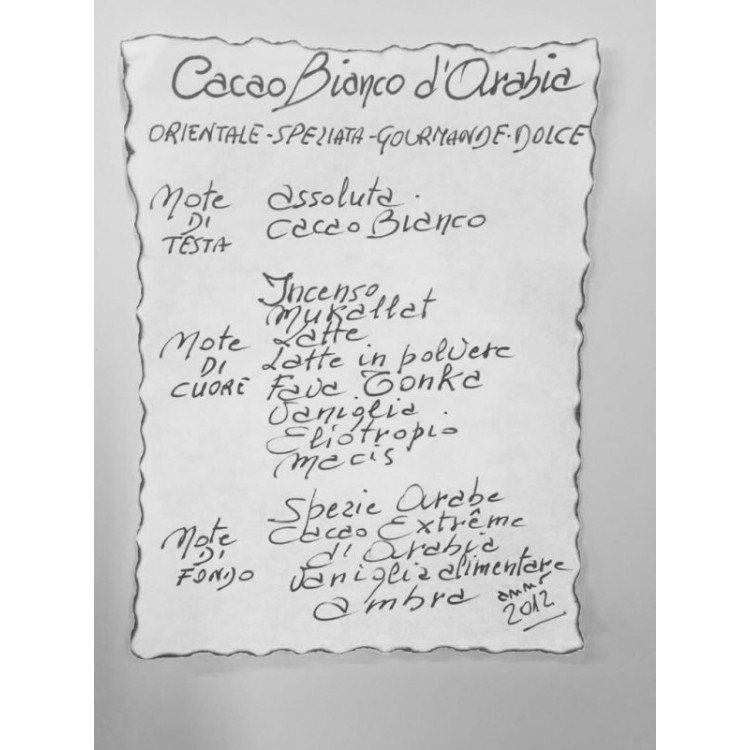 Cacao Bianco d'Arabia
ORIENTALE - SPEZIATA - GOURMANDE - DOLCE
Note DI TESTA
assoluta
Cacao Bianco
Note DI CUORE
Incenso
Mukallat
Latte
Latte in polvere
Fava Tonka
Vaniglia
Eliotropio
macis
Note DI FONDO
Spezie Arabe
Cacao Extrême
di Arabia
Vaniglia alimentare
ambra
2012